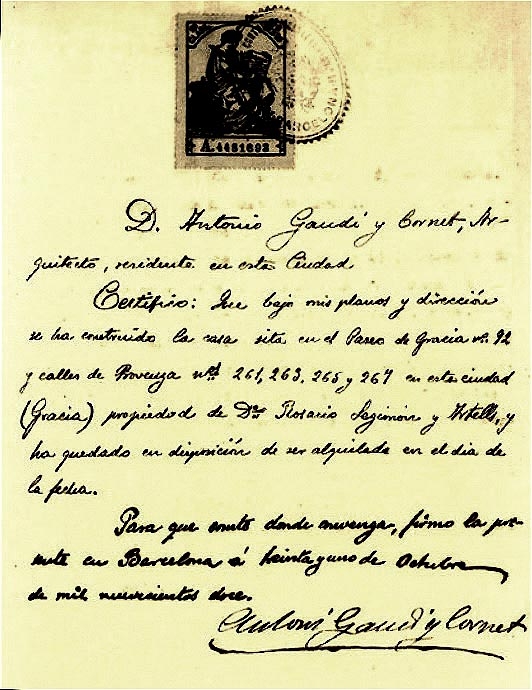 A.4481692
BARCELONA
D. Antonio Gaudí y Cornet, Ar-
quitecto, residente en esta Ciudad
Certifico: Que bajo mis planos y dirección
se ha construido la casa sita en el Paseo de Gracia nº. 92
y calles de Provenza nºs 261, 263, 265 y 267 en esta ciudad
(Gracia) propiedad de Dña Rosario Segimón y Artells, y
ha quedado en disposición de ser alquilada en el día de
la fecha.
Para que conste donde convenga, firmo la pre-
sente en Barcelona á treinta y uno de Octubre
de mil novecientos doce.
Antoni Gaudí y Cornet